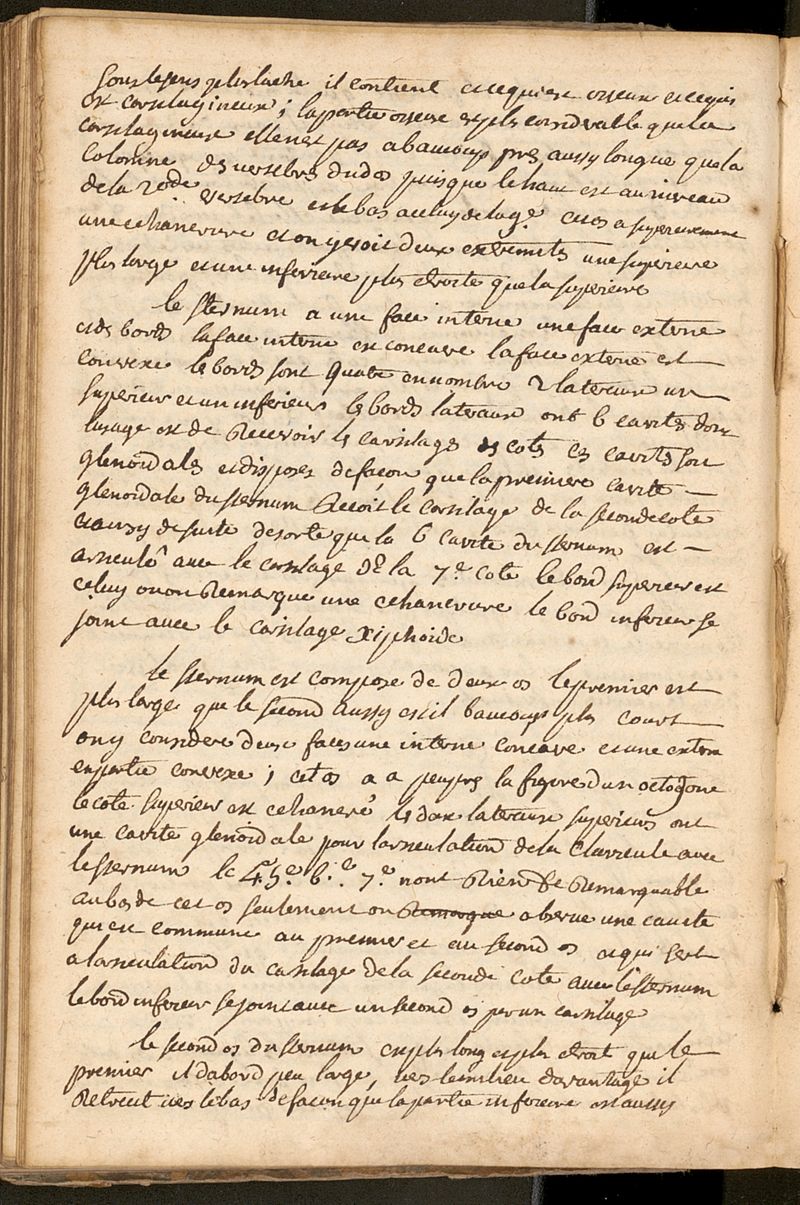 il contient ce qui est osseux et ce qui
est cartilagineux ; la partie osseuse est plus considerable que la
cartilagineuse elle n'est pas a baucoup pres aussy longue que la
colomne des vertebres du dos puisque le haut est au niveau
de la 2de vertebre et le bas a celuy de la 9e cet os a superieurement
une echancrure et on y voit deux extremités une superieure
plus large et une inferieure plus etroite que la superieure
le sternum a une face interne une face externe
et des bords la face interne est concave la face externe est
convexe les bords sont quatre en nombre 2 lateraux un
superieur et un inferieur les bords lateraux ont 6 cavités dont
lusage est de recevoir les cartilages des cotes ces cavités sont
glenoidales et disposes de façon que la premiere cavité
glenoidale du sternum recoit le cartilage de la seconde cote
et aussy de suite de sorte que la 6 cavité du sternum est
articulé avec le cartilage de la 7e cote le bord superieur est
celuy ou on remarque une echancrure le bord inferieur se
joint avec le cartilage xiphoide
le sternum est composé de deux os le premier est
plus large que le second aussy est il baucoup plus court
on y considere deux faces une interne concave et une externe
en partie convexe ; cet os a a peu pres la figure d'un octogone
le coté superieur est echancré les deux lateraux superieurs ont
une cavité glenoidale pour larticulation de la clavicule avec
le sternum le 4. 5e. 6.e 7.e n'ont rien de remarquable
au bas de cet os seulement on remarque observe une cavité
qui est commune au premier et au second os et qui sert
a larticulation du cartilage de la seconde cote avec le sternum
le bord inferieur se joint avec un second os par un cartilage
le second os du sternum est plus long et plus etroit que le
premier il d'abord peu large, vers le milieu davantage il
retrecit vers le bas de façon que la partie inferieure est aussy